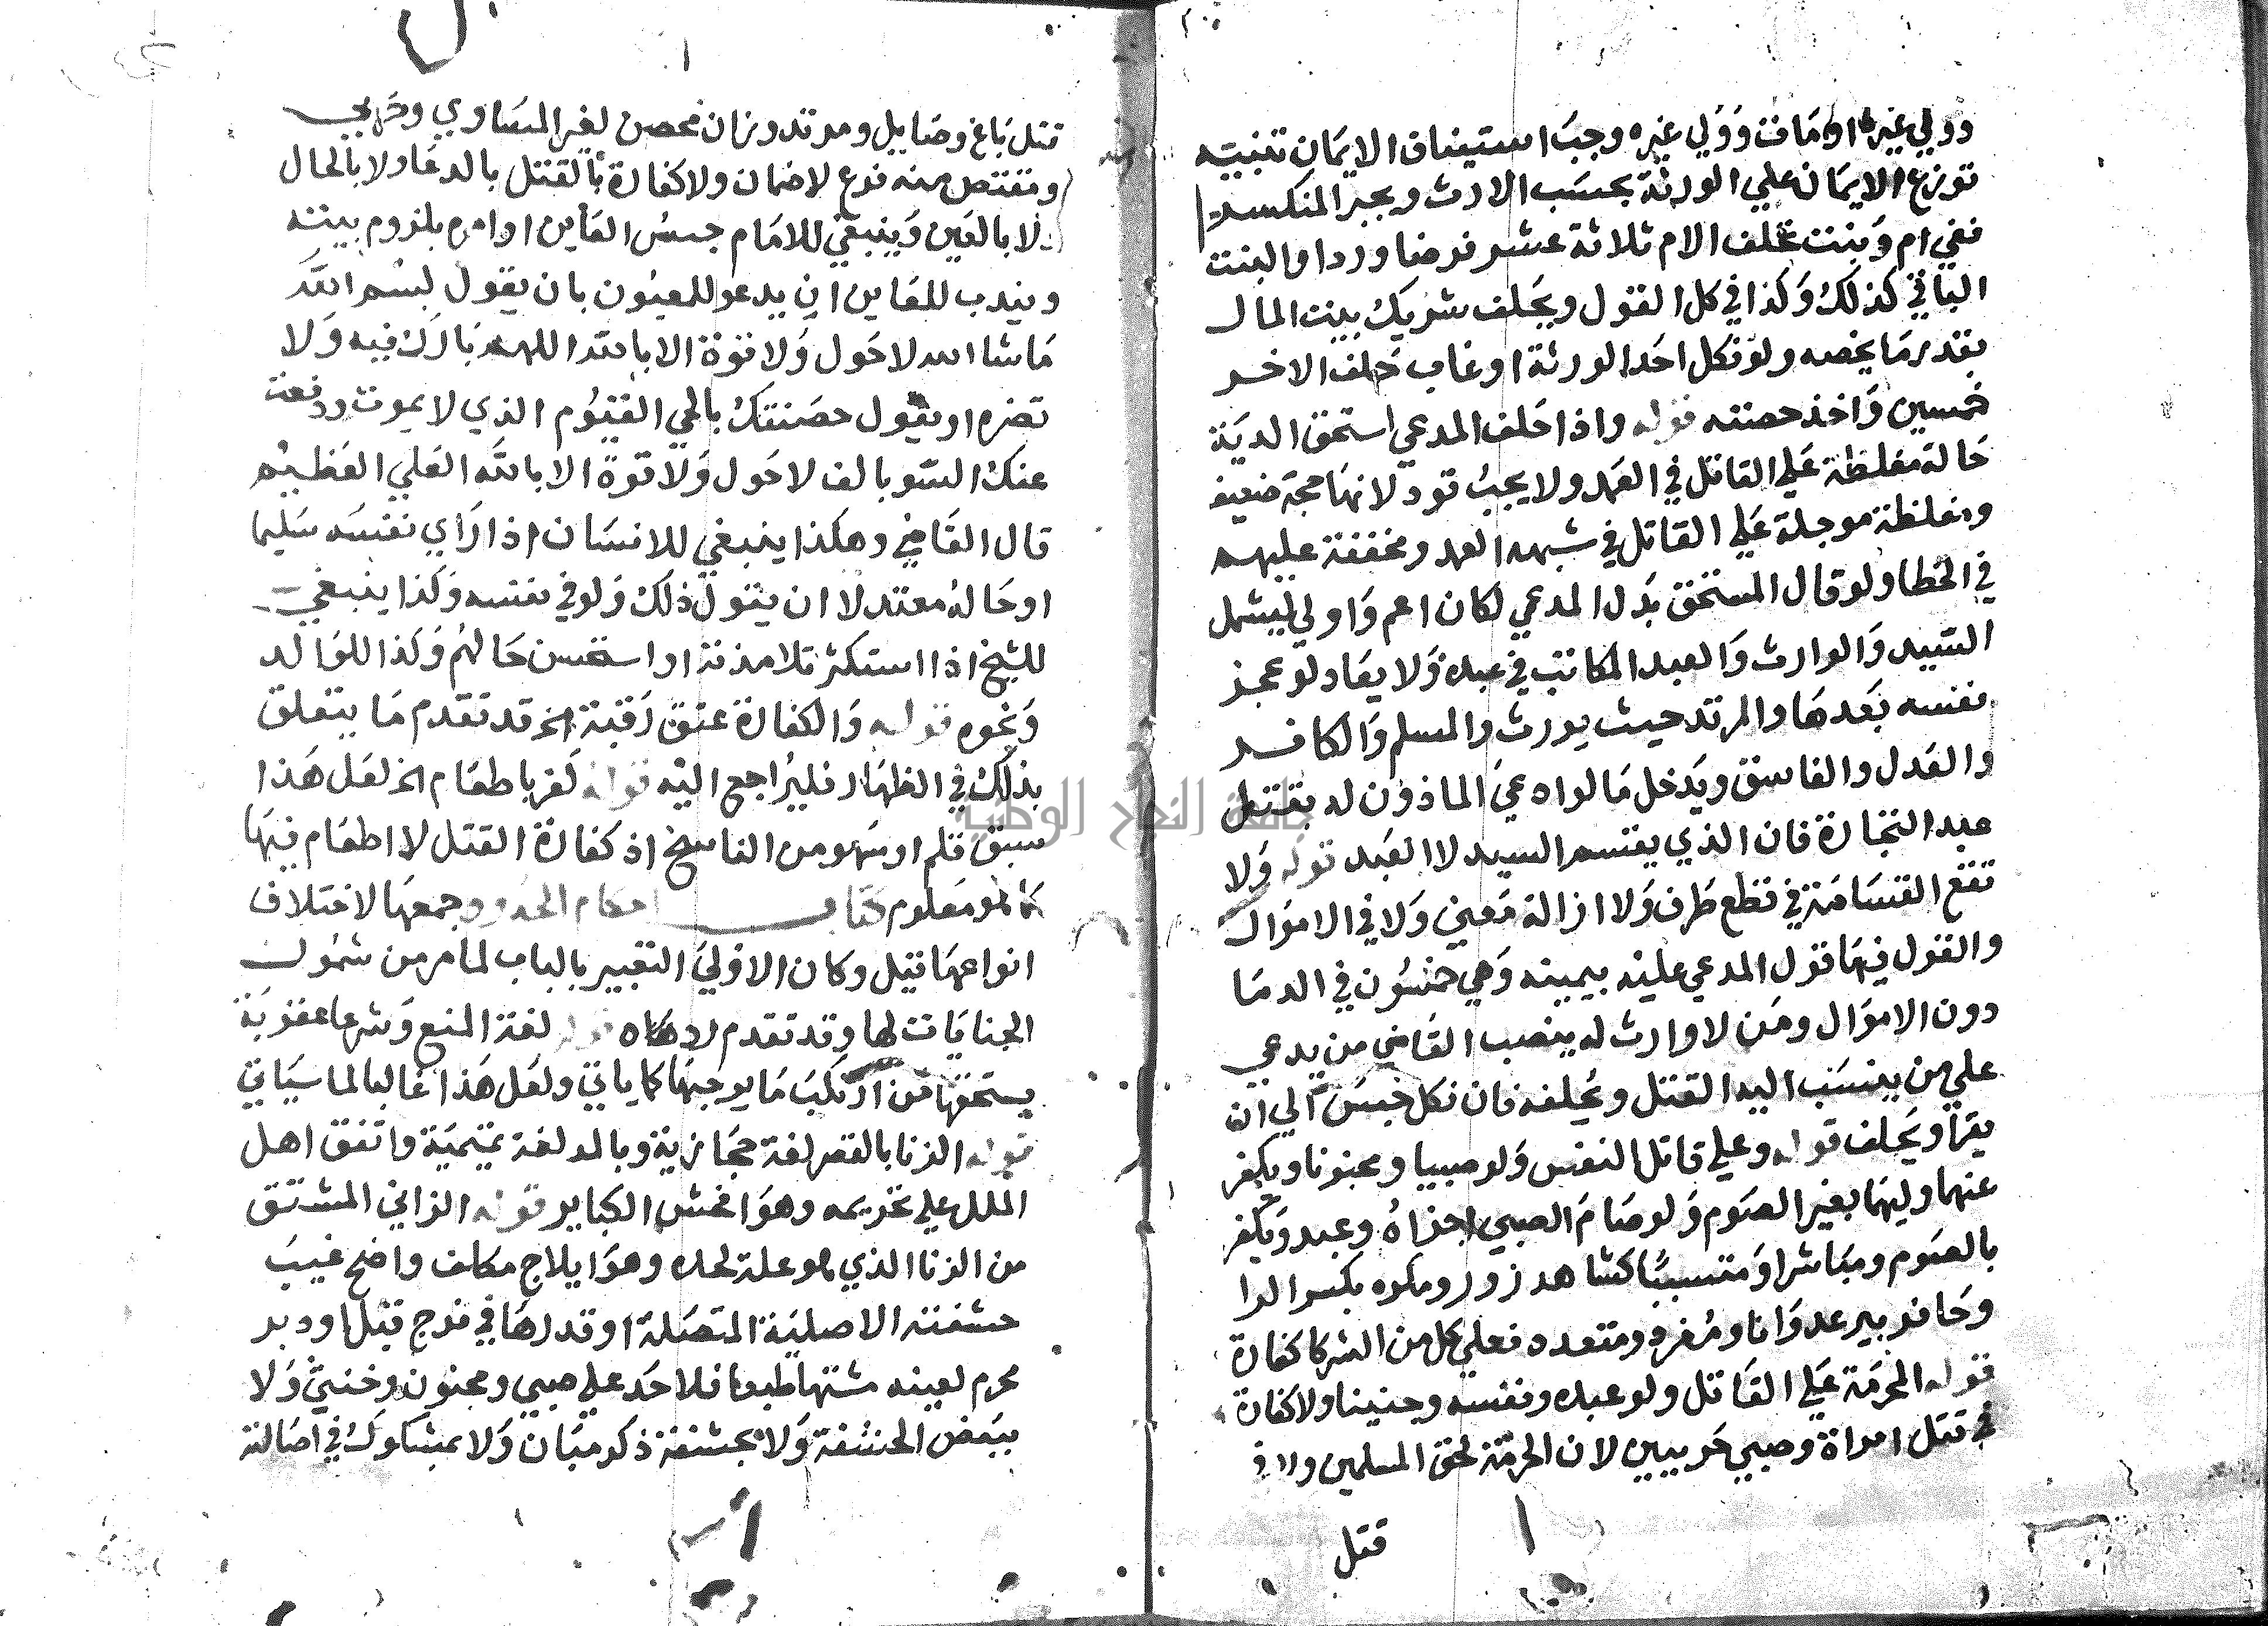 وولي غيره او مات وولي غيره وجب استيناف الايمان تنبيه
توزع الايمان علي الورثة بحسب الارث ويجبر المنكسر
ففي ام وبنت تحلف الام ثلاثة عشر فرضا وردا والبنت
الباقي كذلك وكذا في كل القول ويحلف شريك بيت المال
بقدر ما يخصه ولو نكل احد الورثة او غاب حلف الاخر
خمسين واخذ حصته قوله واذا حلف المدعي استحق الدية
حالة مغلظة علي القاتل في العمد ولا يجب قود لانها حجة ضعيفة
ومغلظة موجلة علي القاتل في شبهه العمد ومخففة عليهم
في الخطا ولو قال المستحق بدل المدعي لكان اعم واولي ليشمل
السيد والوارث والعبد المكاتب في عبده ولا يعاد لو عجز
نفسه بعدها والمرتد حيث يورث والمسلم والكافر
والعدل والفاسق ويدخل ما لو ادعي الماذون له بقتل
عبد التجارة فان الذي يقسم السيد لا العبد قوله ولا
تقع القسامة في قطع طرف ولا ازالة معين ولا في الاموال
والقول فيها قول المدعي عليه بيمينه وهي خمسون في الدما
دون الاموال ومن لا وارث له ينصب القاضي من يدعي
علي من ينسب اليه القتل ويحلفه فان نكل حبس الي ان
يقر او يحلف قوله وعلي قاتل النفس ولو صبيا ومجنونا ويكفر
عنهما وليهما بغير الصوم ولو صام الصبي اجزاه وعبد ويكفر
بالصوم ومباشرا ومتسببا كشاهد زور ومكره بكسر الرا
وحافر بير عدوانا ومفرد ومتعدد فعلي كل من الشركا كفارة
قوله المحرمة علي القاتل ولو عبده ونفسه وجنينا ولا كفارة
في قتل امراة وصبي حربيين لان الحرمة لحق المسلمين ولا في
قتل
قتل باغ وصايل ومرتد وزان محصن لغير المساوي وحربي
ومقتص منه فرع لا ضمان ولا كفارة بالقتل بالدعا ولا بالحال
ولا بالعين وينبغي للامام حبس العاين او امره بلزوم بيته
ويندب للعاين ان يدعو للمعيون بان يقول بسم الله
ما شا الله لا حول ولا قوة الا بالله اللهم بارك فيه ولا
تضره او يقول حصنتك بالحي القيوم الذي لا يموت ودفعت
عنك السو بالف لا حول ولا قوة الا بالله العلي العظيم
قال القاضي وهكذا ينبغي للانسان اذا راي نفسه سليما
او حاله معتدلا ان يقول ذلك ولو في نفسه وكذا ينبغي
للشيخ اذا استكثر تلامذته او استحسن حالهم وكذا للوالد
ونحوه قوله والكفارة عتق رقبة الخ قد تقدم ما يتعلق
بذلك في الظهار فليراجع اليه قوله كفر باطعام الخ لعل هذا
سبق قلم او سهو من الناسخ اذ كفارة القتل لا اطعام فيها
كما هو معلوم كتاب احكام الحدود جمعها لاختلاف
انواعها قيل وكان الاولي التعبير بالباب لما مر من شمول
الجنايات لها وقد تقدم رده قوله لغة المنع وشرعا عقوبة
يستحقها من ارتكب ما يوجبها كما ياتي ولعل هذا غالبا لما سياتي
قوله الزنا بالقصر لغة حجازية وبالمد لغة تميمية واتفق اهل
الملل علي تحريمه وهو افحش الكباير قوله الزاني المشتق
من الزنا الذي هو علة لحده وهو ايلاج مكلف واضح غيب
حشفته الاصلية المتصلة او قدرها في فرج قبل او دبر
محرم لعينه مشتها طبعا فلا حد علي صبي ومجنون وخنثي ولا
ببعض الحشفة ولا بحشفة ذكر مبان ولا بمشكوك في اصالته
جامعة النجاح الوطنية